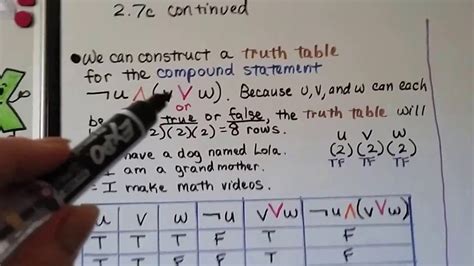 2.7c continued
•We can construct a truth table
for the compound statement
¬u ∧ (v ∨ w). Because u, v, and w can each
or
be true or false, the truth table will
(2)(2)=8 rows.
u v w
(2)(2)(2)
TF TF TF
have a dog named Lola.
= I am a grandmother.
= I make math videos.
u v w ¬u v∨w ¬u∧(v∨w)
T T T F T F
T T F F T F
EXPO